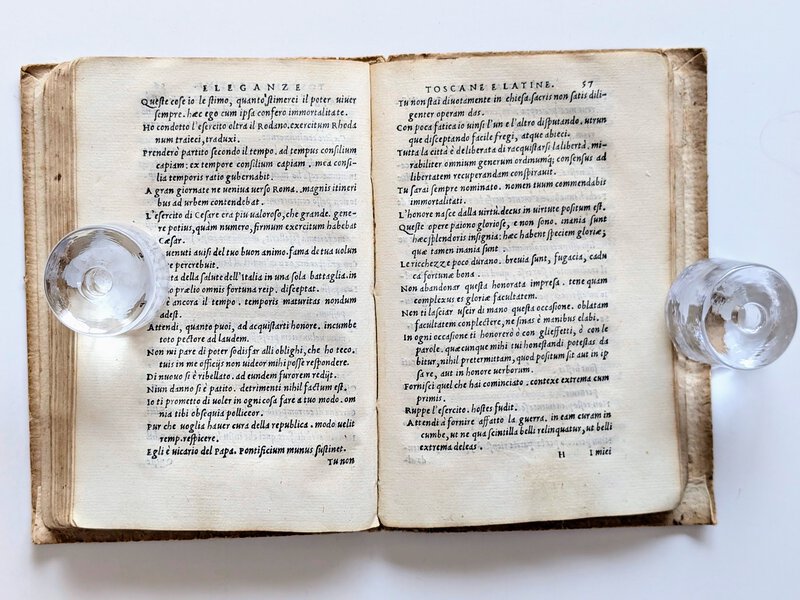 ELEGANZE
Queste cose io le stimo, quanto stimerei il poter uiuer
sempre. hæc ego cum ipsa confero immortalitate.
Ho condotto l'esercito oltra il Rodano. exercitum Rhoda
num traieci, traduxi.
Prenderò partito secondo il tempo. ad tempus consilium
capiam: ex tempore consilium capiam. mea consi-
lia temporis ratio gubernabit.
A gran giornate ne ueniua uerso Roma. magnis itineri
bus ad urbem contendebat.
L'esercito di Cesare era piu ualoroso, che grande. gene-
re potius, quam numero, firmum exercitum habebat
Cæsar.
uenuti auisi del tuo buon animo. fama de tua uolun
percrebuit.
ta della salute dell'Italia in una sola battaglia. in
o prælio omnis fortuna reip. disceptat.
è ancora il tempo. temporis maturitas nondum
adest.
Attendi, quanto puoi, ad acquistarti honore. incumbe
toto pectore ad laudem.
Non mi pare di poter sodisfar alli oblighi, che ho teco.
tuis in me officijs non uideor mihi posse respondere.
Di nuouo si è ribellato. ad eundem furorem redijt.
Niun danno si è patito. detrimenti nihil factum est.
Io ti prometto di uoler in ogni cosa fare a tuo modo. om
nia tibi obsequia polliceor.
Pur che uoglia hauer cura della republica. modo uelit
remp. respicere.
Egli è uicario del Papa. Pontificium munus sustinet.
Tu non
TOSCANE E LATINE. 57
Tu non stai diuotamente in chiesa. sacris non satis dili-
genter operam das.
Con poca fatica io uinsi l'un e l'altro disputando. utrun
que disceptando facile fregi, atque abieci.
Tutta la città è deliberata di racquistarsi la libertà. mi-
rabiliter omnium generum ordinumq; consensus ad
libertatem recuperandam conspirauit.
Tu sarai sempre nominato. nomen tuum commendabis
immortalitati.
L'honore nasce dalla uirtù. decus in uirtute positum est.
Queste opere paiono gloriose, e non sono. inania sunt
hæc splendoris insignia: hæc habent speciem gloriæ;
quæ tamen inania sunt
Le ricchezze poco durano. breuia sunt, fugacia, cadu
ca fortunæ bona.
Non abandonar questa honorata impresa. tene quam
complexus es gloriæ facultatem.
Non ti lasciar uscir di mano questa occasione. oblatam
facultatem complectere, ne sinas è manibus elabi.
In ogni occasione ti honorerò ò con gli effetti, ò con le
parole. quæcunque mihi tui honestandi potestas da
bitur, nihil pretermittam, quod positum sit aut in ip
sa re, aut in honore uerborum.
Fornisci quel che hai cominciato. contexe extrema cum
primis.
Ruppe l'esercito. hostes fudit.
Attendi à fornire affatto la guerra. in eam curam in
cumbe, ut ne qua scintilla belli relinquatur, ut belli
extrema deleas.
H I miei